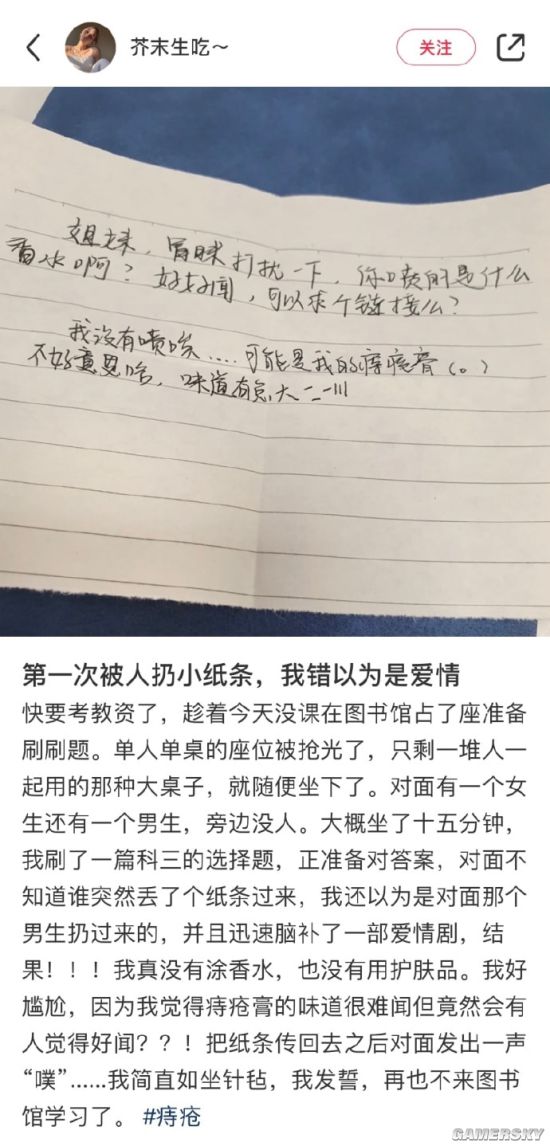 芥末生吃～
关注
姐妹，冒昧打扰一下，你喷的是什么
香水啊？好好闻，可以求个链接么？
我没有喷哈....可能是我的痔疮膏(。)
不好意思哈，味道有点大二二川
第一次被人扔小纸条，我错以为是爱情
快要考教资了，趁着今天没课在图书馆占了座准备
刷刷题。单人单桌的座位被抢光了，只剩一堆人一
起用的那种大桌子，就随便坐下了。对面有一个女
生还有一个男生，旁边没人。大概坐了十五分钟，
我刷了一篇科三的选择题，正准备对答案，对面不
知道谁突然丢了个纸条过来，我还以为是对面那个
男生扔过来的，并且迅速脑补了一部爱情剧，结
果！！！我真没有涂香水，也没有用护肤品。我好
尴尬，因为我觉得痔疮膏的味道很难闻但竟然会有
人觉得好闻？？！把纸条传回去之后对面发出一声
“噗”......我简直如坐针毡，我发誓，再也不来图书
馆学习了。 #痔疮
GAMERSKY